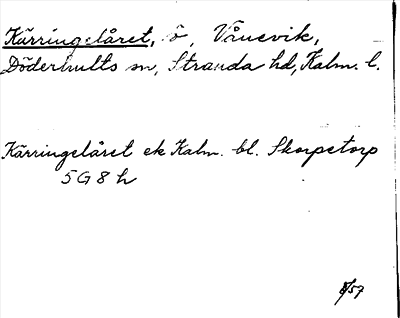 Kärringelåret, ö, Vånevik,
Döderhults sn, Stranda hd, Kalm. l.
Kärringelåret ek Kalm. bl. Skorpetorp
5G8h
8/57